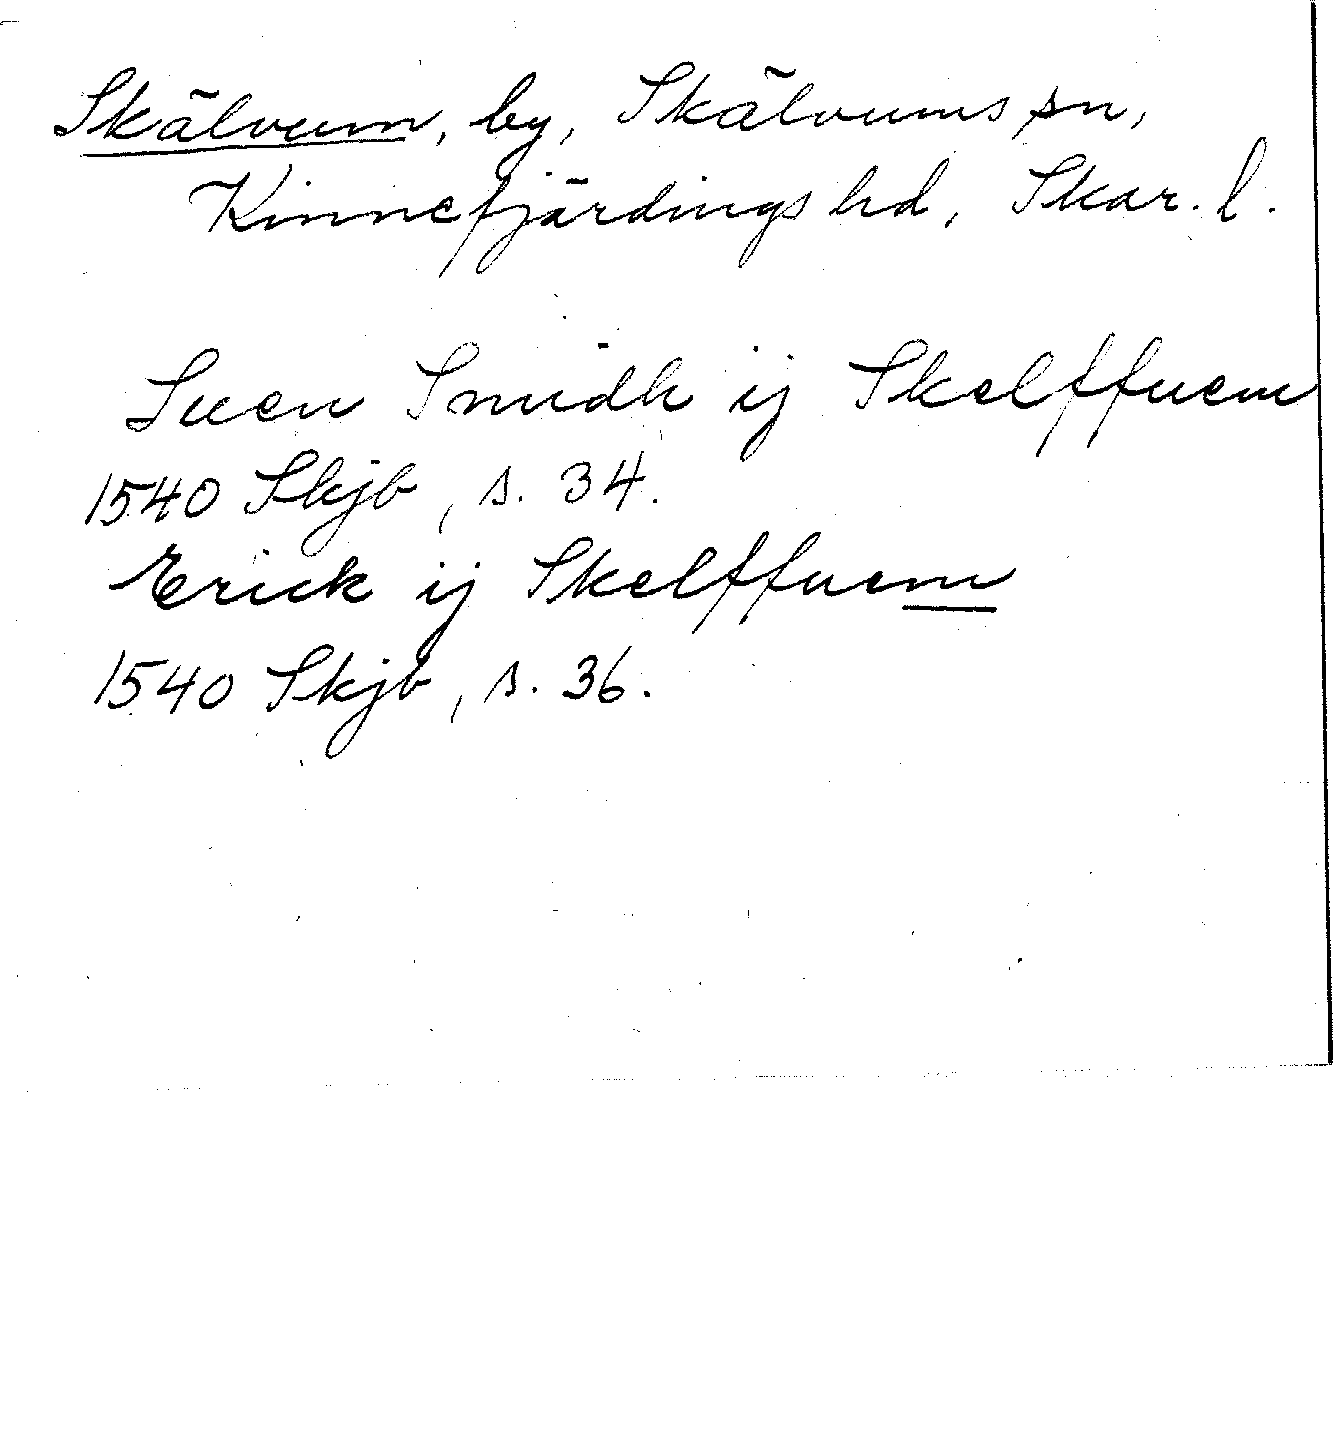 Skälvum, by, Skälvums sn,
Kinnefjärdings hd, Skar. l.
Suen Smidh ij Skelffuem
1540 Skjb, s. 34.
Erick ij Skelffuem
1540 Skjb, s. 36.